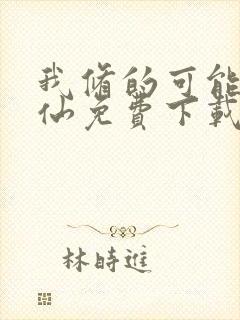 我修的可能
仙免費下載
林時進